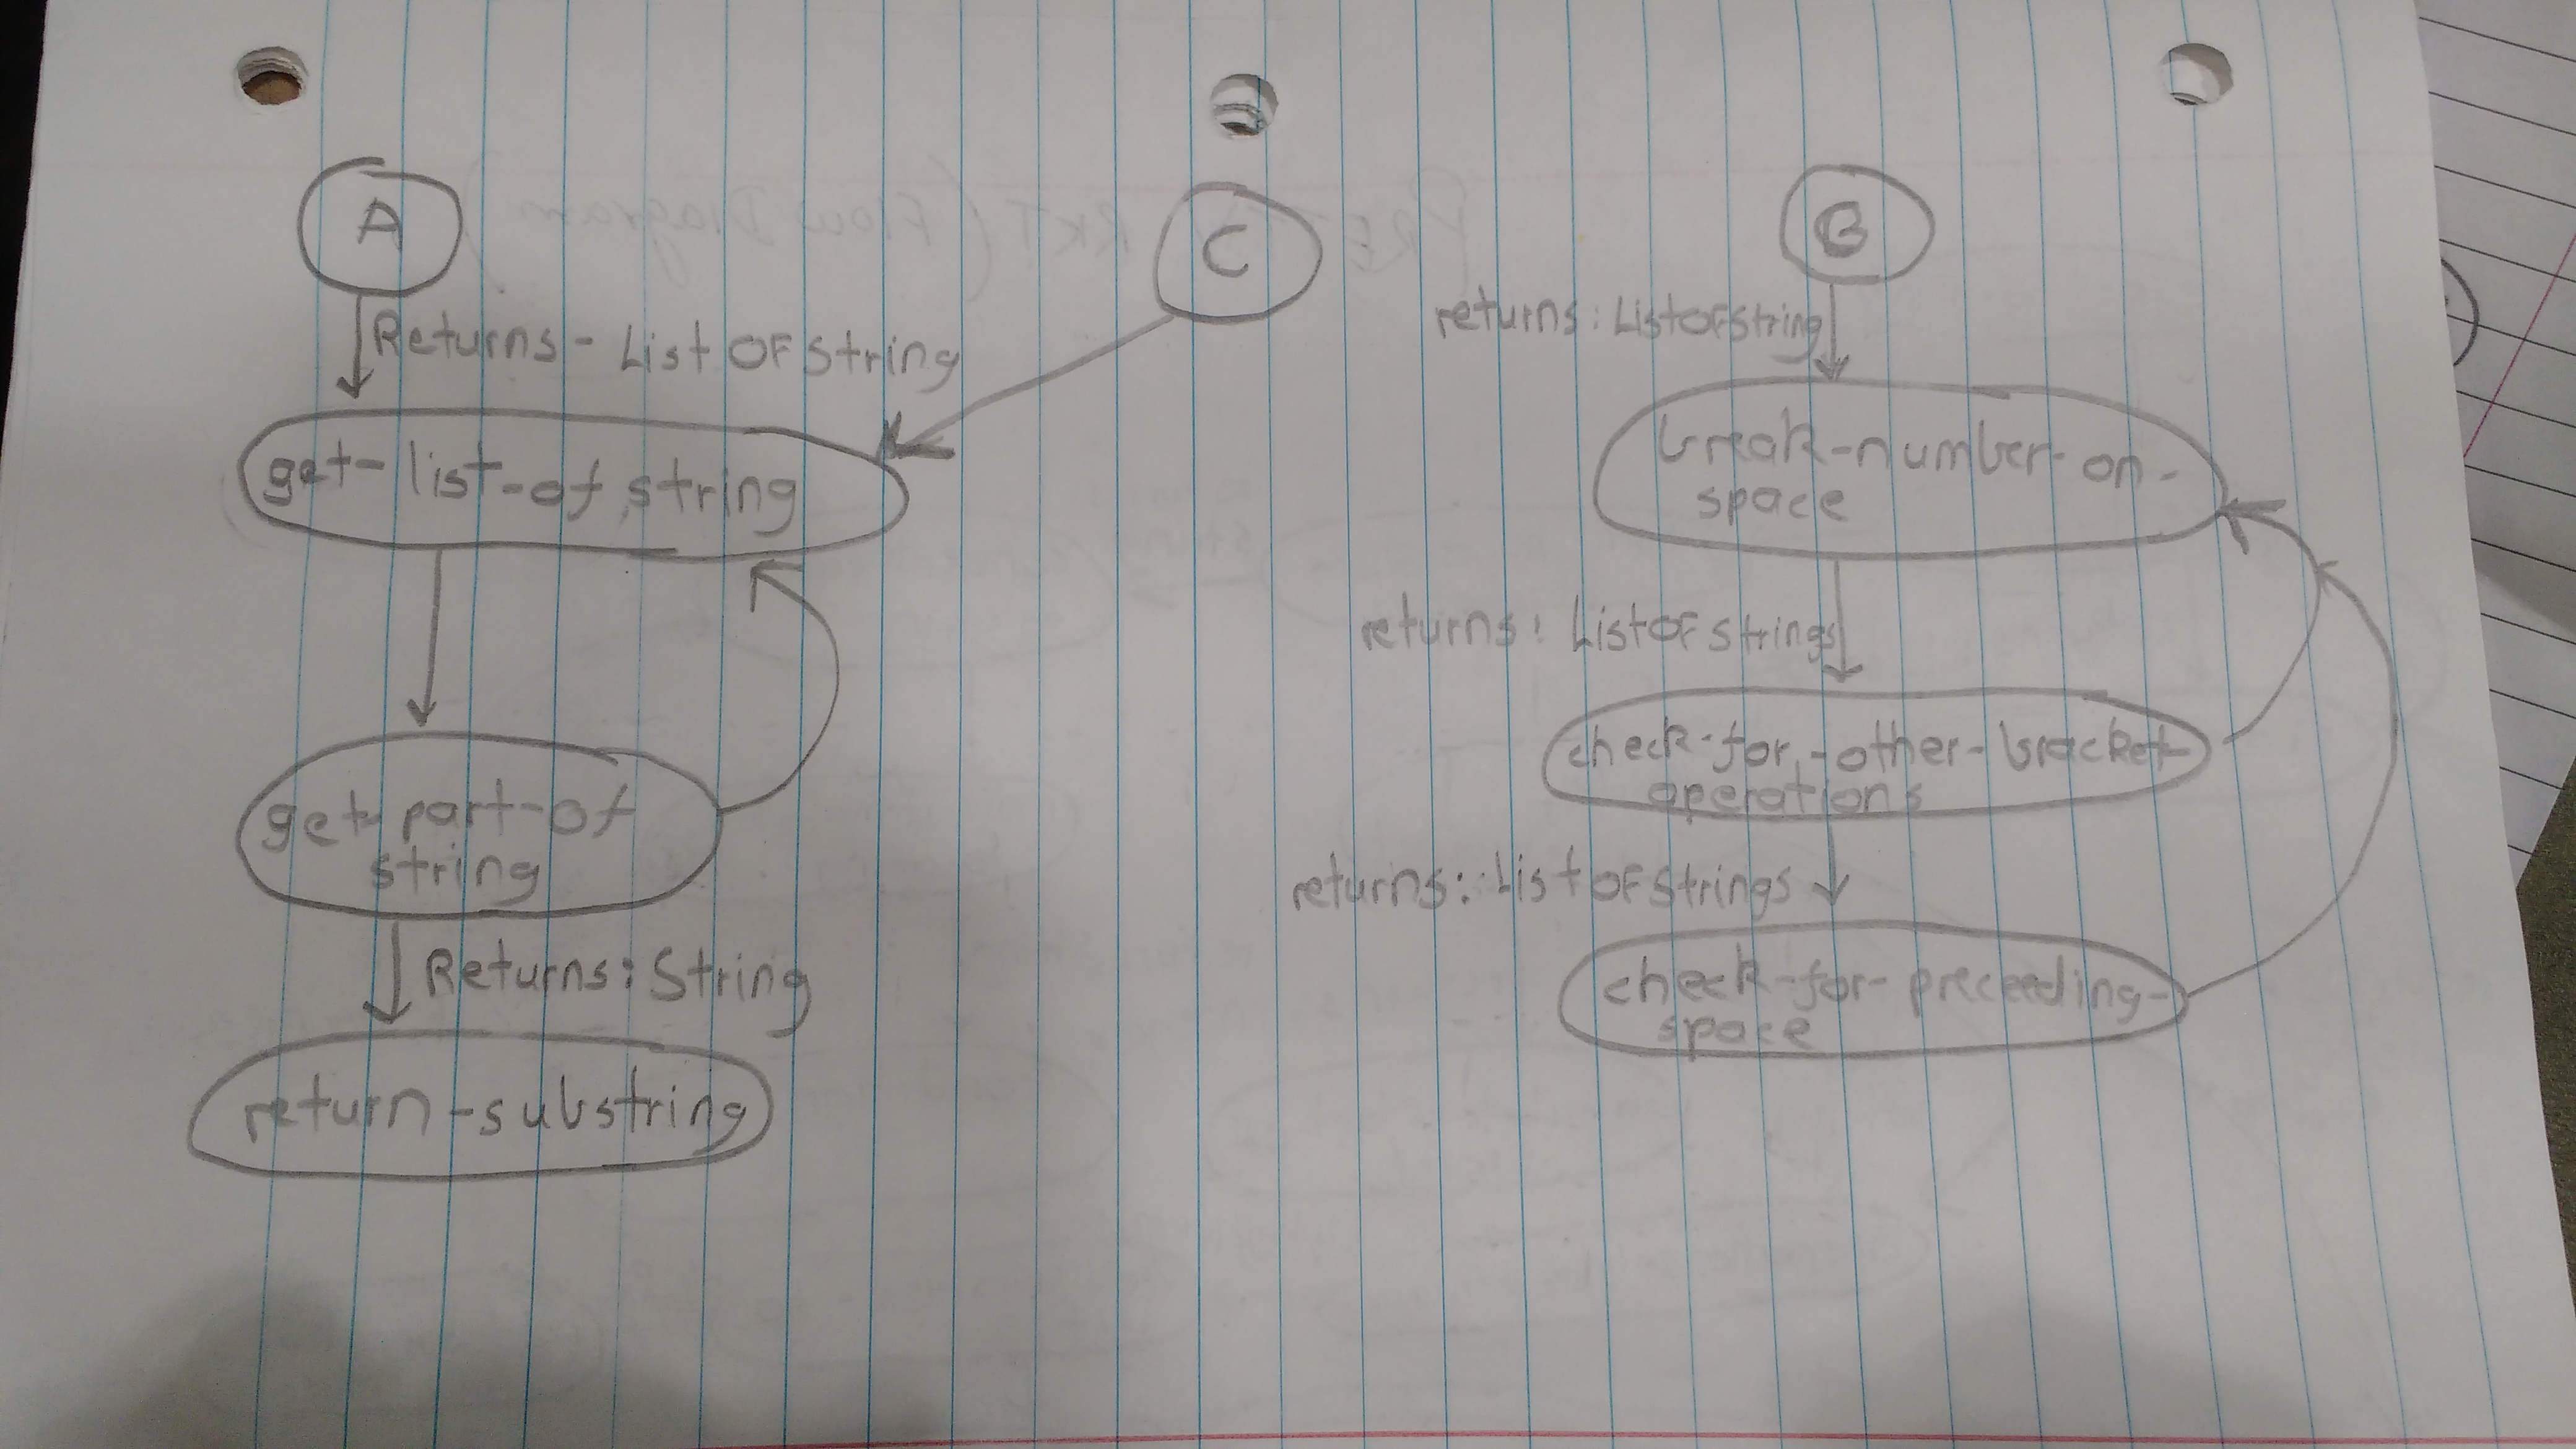 A
Returns - List OF string
get-list-of string
get-part-of
string
Returns: String
return-substring
C
B
returns: Listofstring
break-number-on-
space
returns: Listof strings
check-for-other-bracket-
operations
returns: List OF strings
check-for-preceeding-
space